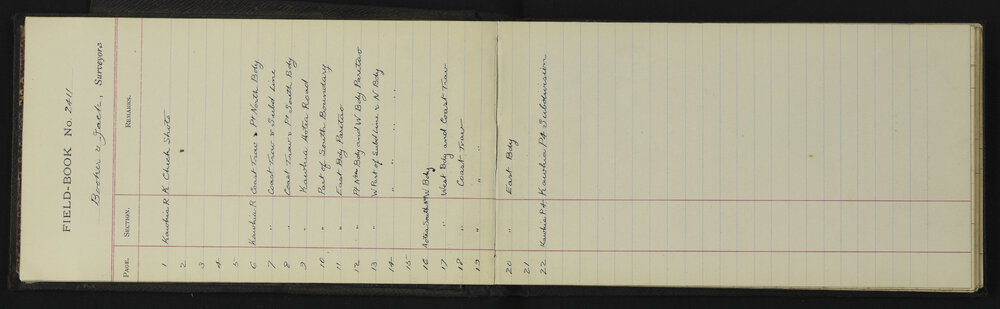 FIELD-BOOK No. 2411
Booker & Jack, Surveyors
PAGE. SECTION. REMARKS.
1 Kawhia R K Check Shots
2
3
4
5
6 Kawhia R. Coast Trav & Pt North Bdy
7 " Coast Trav & Subd Line
8 " Coast Trav & Pt South Bdy
9 " Kawhia Aotea Road
10 " Part of South Boundary
11 " East Bdy Paretao
12 " Pt Nn Bdy and W Bdy Paretao
13 " W Part of Subd line & N Bdy
14 " " "
15
16 Aotea South W Bdy
17 " West Bdy and Coast Trav
18 " Coast Trav
19 " "
20 " East Bdy
21
22 Kawhia P4 Kawhia P4 Subdivision